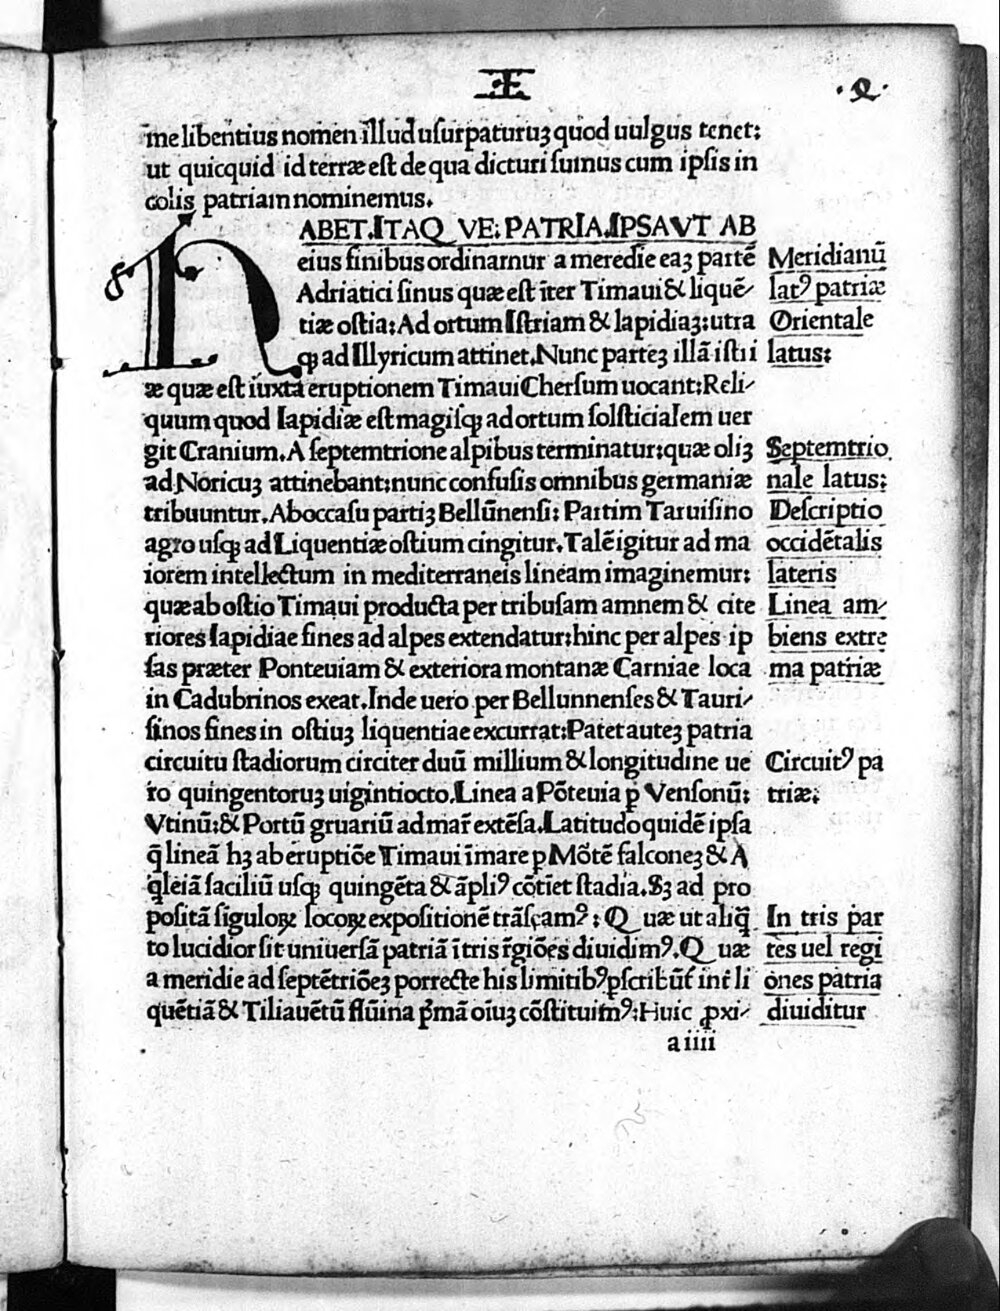 me libentius nomen illud usurpaturuꝫ quod uulgus tenet:
ut quicquid id terræ est de qua dicturi sumus cum ipsis in
colis patriam nominemus.
HABET.ITAQ VE: PATRIA.IPSA VT AB
eius finibus ordinarnur a meredie eaꝫ partē
Adriatici sinus quæ est īter Timaui & liquē⸗
tiæ ostia: Ad ortum Istriam & Iapidiaꝫ: utra
qꝫ ad Illyricum attinet. Nunc parteꝫ illā istii
æ quæ est iuxta eruptionem Timaui Chersum uocant: Reli⸗
quum quod Iapidiæ est magisqꝫ ad ortum solsticialem uer
git Cranium. A septemtrione alpibus terminatur: quæ oliꝫ
ad Noricuꝫ attinebant: nunc confusis omnibus germaniæ
tribuuntur. Ab occasu partiꝫ Bellūnensi: Partim Taruisino
agro usqꝫ ad Liquentiæ ostium cingitur. Talē igitur ad ma
iorem intellectum in mediterraneis lineam imaginemur:
quæ ab ostio Timaui producta per tribusam amnem & cite
riores Iapidiae fines ad alpes extendatur: hinc per alpes ip
sas præter Ponteuiam & exteriora montanæ Carniae loca
in Cadubrinos exeat. Inde uero per Bellunnenses & Tauri⸗
sinos fines in ostiuꝫ liquentiae excurrat: Patet auteꝫ patria
circuitu stadiorum circiter duū millium & longitudine ue
ro quingentoruꝫ uigintiocto. Linea a Pōteuia ꝑ Vensonū:
Vtinū: & Portū gruariū ad mar̄ extēsa. Latitudo quidē ipsa
q̄ lineā hꝫ ab eruptiōe Timaui ī mare ꝑ Mōtē falconeꝫ & A
q̄leiā faciliū usqꝫ quingēta & āpliꝰ cōtīet stadia. Sꝫ ad pro
positā siguloꝝ locoꝝ expositionē trāscamꝰ: Q uæ ut aliq̄
to lucidior sit uniuersā patriā ī tris r̄giōes diuidimꝰ. Q uæ
a meridie ad septētriōeꝫ porrecte his limitibꝰ p̄scribūt̄ int̄ li
quētiā & Tiliauētū flūina p̄mā oīuꝫ cōstituimꝰ: Huic ꝓxi⸗
a iiii
Meridianū
latꝰ patriæ
Orientale
latus:
Septemtrio
nale latus:
Descriptio
occidētalis
lateris
Linea am⸗
biens extre
ma patriæ
Circuitꝰ pa
triæ:
In tris par
tes uel regi
ones patria
diuiditur